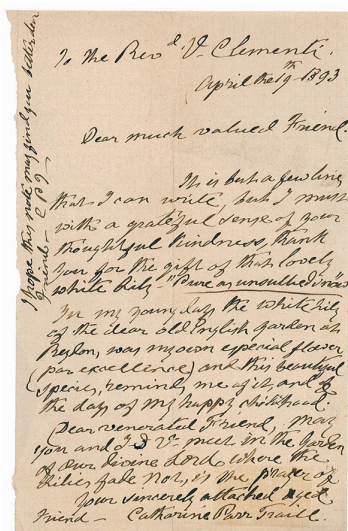 To the Revd. V. Clementi.
April the 19th 1893
Dear much valued Friend.
It is but a few lines
that I can write, but I must
with a grateful sense of your
thoughtful kindness, thank
you for the gift of that lovely
white lily - "Pure as unsoiled snow"
In my young days the white lily
of the dear old English garden at
Reydon, was my own especial flower
(par excellence) and this beautiful
species, reminds me of it, and of
the days of my happy childhood.
Dear venerated Friend, may
you and I D.V. meet in the garden
of our divine Lord where the
lilies fade not, is the prayer of
your sincerely attached aged
Friend - Catharine Parr Traill.
I hope this note may find you better dear
Friend -